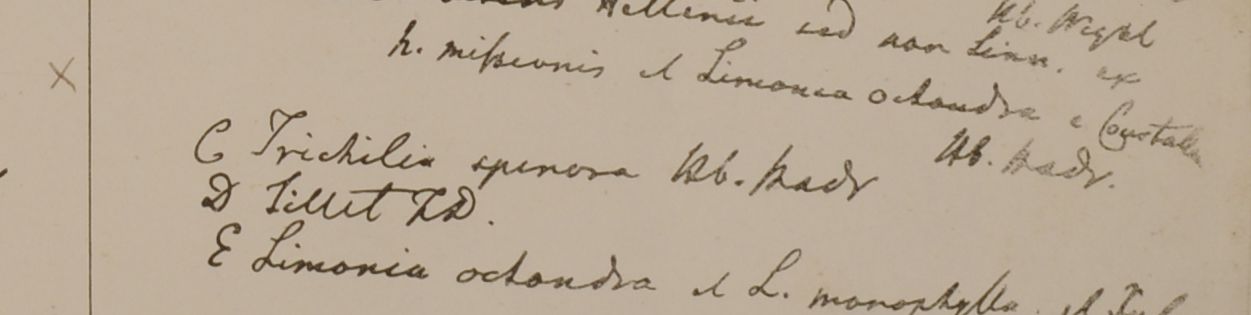 Hellenii sed non Linn. ex
Hb. Wight
h. missionis et Limonia octandra e
Hb. Madr.
C Trichilia spinosa Hb. Madr
D Sillet FD.
E Limonia octandra et L. monophylla. et